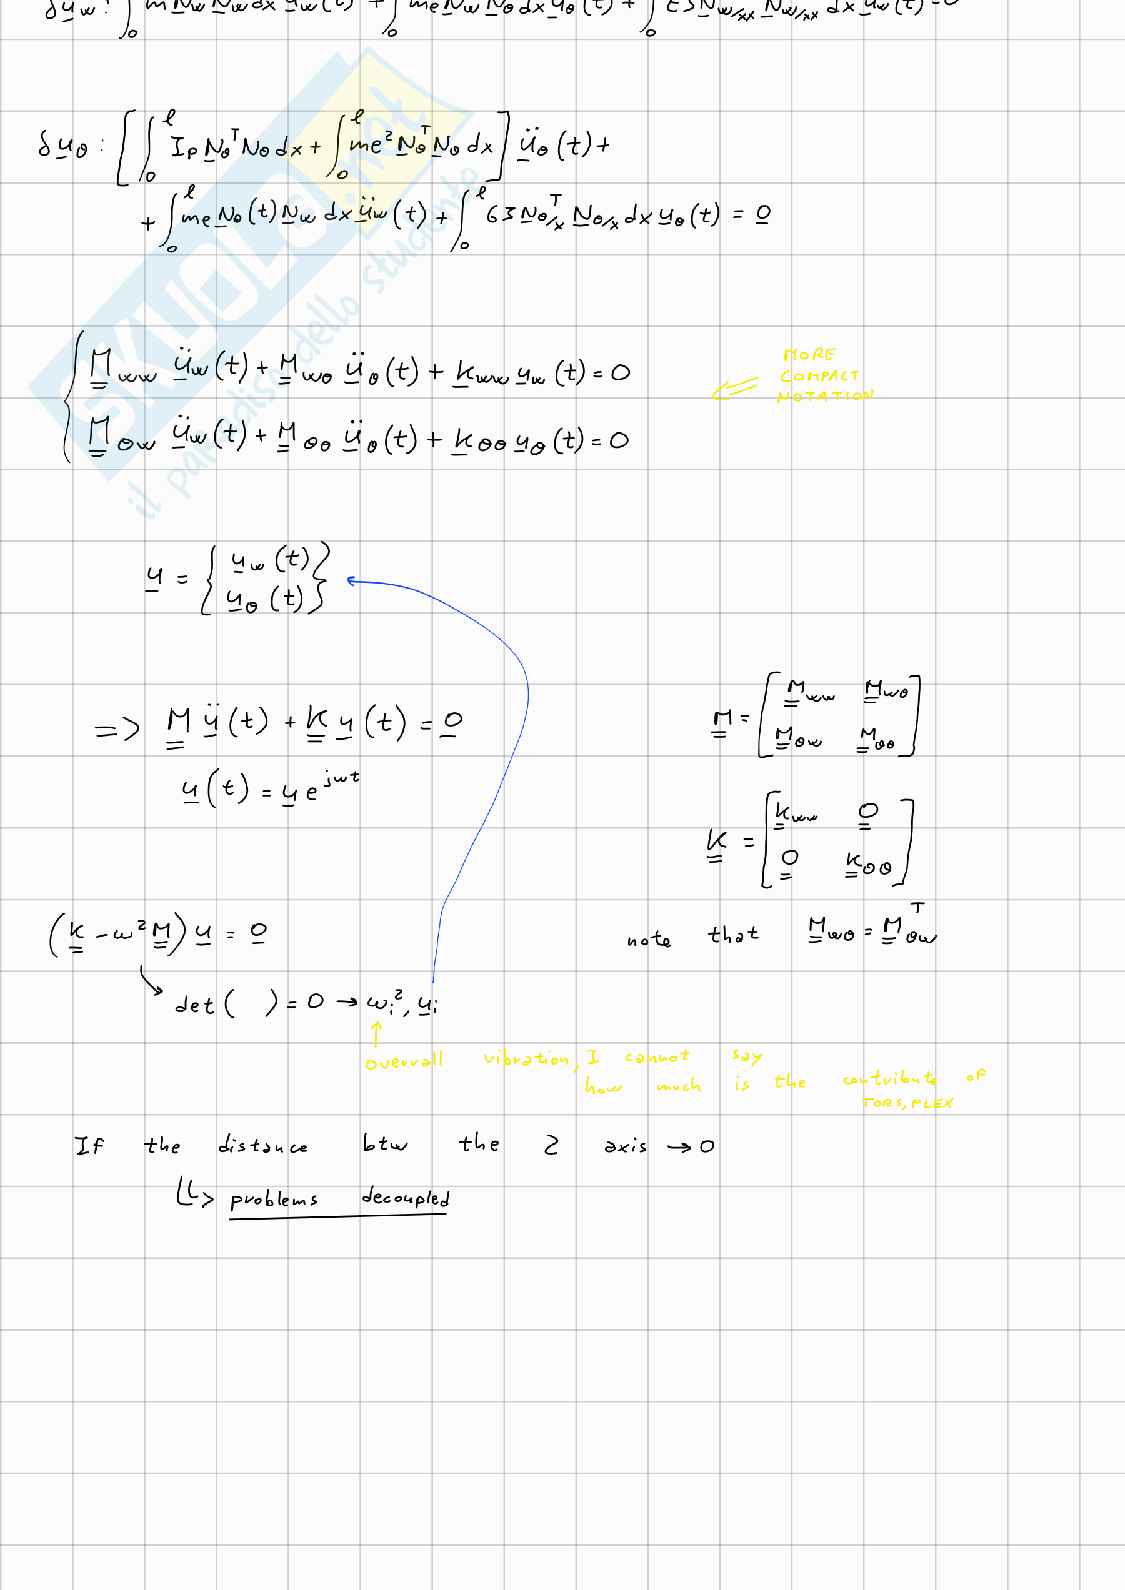 δu_w: ∫₀ m N_w N_w dx ü_w(t) + ∫₀ me N_w N_θ dx ü_θ(t) + ∫₀ EJ N_w/xx N_w/xx dx u_w(t) = 0
δu_θ: [∫₀^ℓ I_P N_θ^T N_θ dx + ∫₀^ℓ me² N_θ^T N_θ dx] ü_θ(t) +
+ ∫₀^ℓ me N_θ(t) N_w dx ü_w(t) + ∫₀^ℓ GJ N_θ/x^T N_θ/x dx u_θ(t) = 0
{ M_ww ü_w(t) + M_wθ ü_θ(t) + K_ww u_w(t) = 0
M_θw ü_w(t) + M_θθ ü_θ(t) + K_θθ u_θ(t) = 0
MORE
COMPACT
NOTATION
u = { u_w(t)
u_θ(t) }
=> M ü(t) + K u(t) = 0
u(t) = u e^jωt
M = [ M_ww M_wθ
M_θw M_θθ ]
K = [ K_ww 0
0 K_θθ ]
note that M_wθ = M_θw^T
(K - ω² M) u = 0
det( ) = 0 → ω_i², u_i
overrall vibration, I cannot say
how much is the contribute of
TORS, FLEX
If the distance btw the 2 axis → 0
problems decoupled
SKUOLA.not
il paradiso dello studente